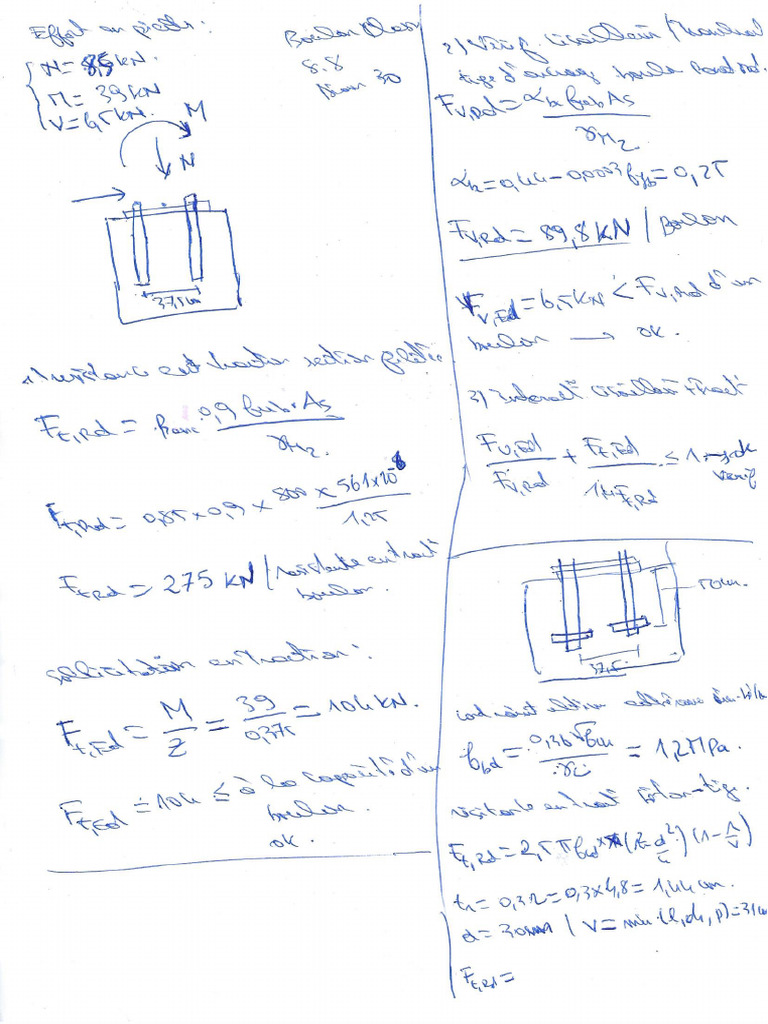 Effort en pieds :
N = 85 kN.
M = 39 kN
V = 6,5 kN.
Boulon Class
8.8
Diam 30
M
N
37,5 cm
1) résistance en traction section filetée
F_t,Rd = 0,9 fub. As / γM2.
F_t,Rd = 0,85 x 0,9 x 800 x 561x10 / 1,25
F_t,Rd = 275 kN / résistante en tract
boulon.
sollicitation en traction :
F_t,Ed = M/Z = 39/0,375 = 104 kN.
F_t,Ed = 104 ≤ à la capacité d'un
boulon.
ok.
2) Vérif. cisaillem
tige d'ancrage boulon
F_v,Rd = αb fub As / γM2
αb = 0,44 - 0,0003 fyb = 0,25
F_v,Rd = 89,8 kN / Boulon
F_v,Ed = 6,5 kN < F_v,Rd d'un
boulon → ok.
3) Interact° cisaillem + tract°
F_v,Ed / F_v,Rd + F_t,Ed / 1,4 F_t,Rd ≤ 1 → ok
verif
50 cm.
37,5
fbd = 0,36 √fck / γc = 1,2 MPa.
résistante en tract tige.
F_t,Rd = 2,5 π fbd
r1 = 0,3 r = 0,3 x 4,8 = 1,44 cm.
d = 30 mm / V = min (l, d1, p) = 31 cm
F_t,Rd =